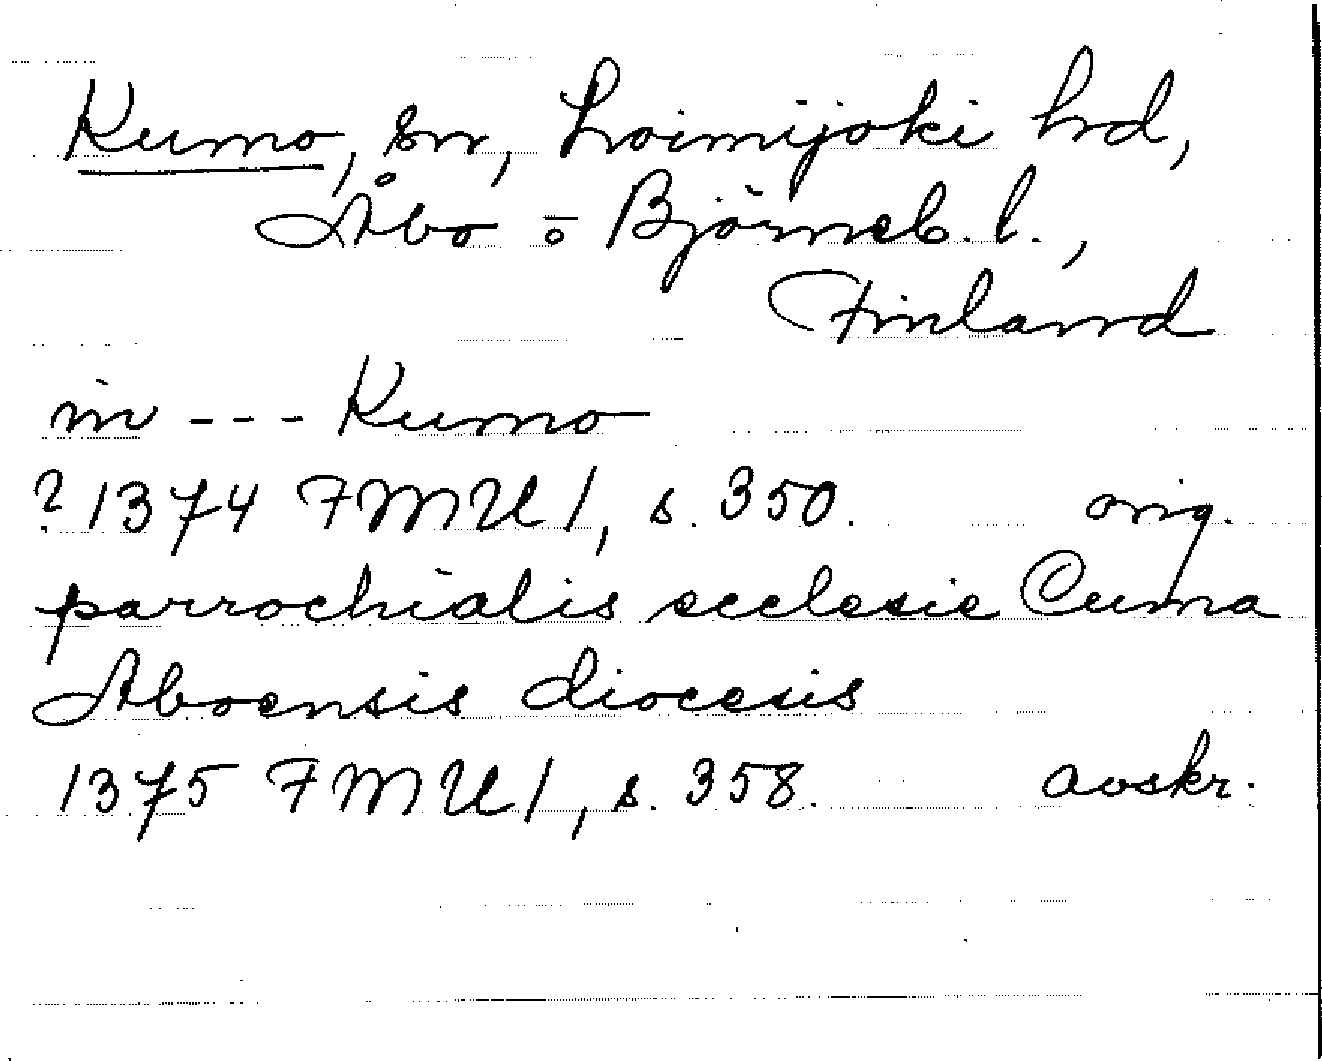 Kumo, sn, Loimijoki hd,
Åbo o Björneb. l.,
Finland
in --- Kumo
? 1374 FMU 1, s. 350. orig.
parrochialis ecclesie Cuma
Aboensis diocesis
1375 FMU 1, s. 358. avskr.